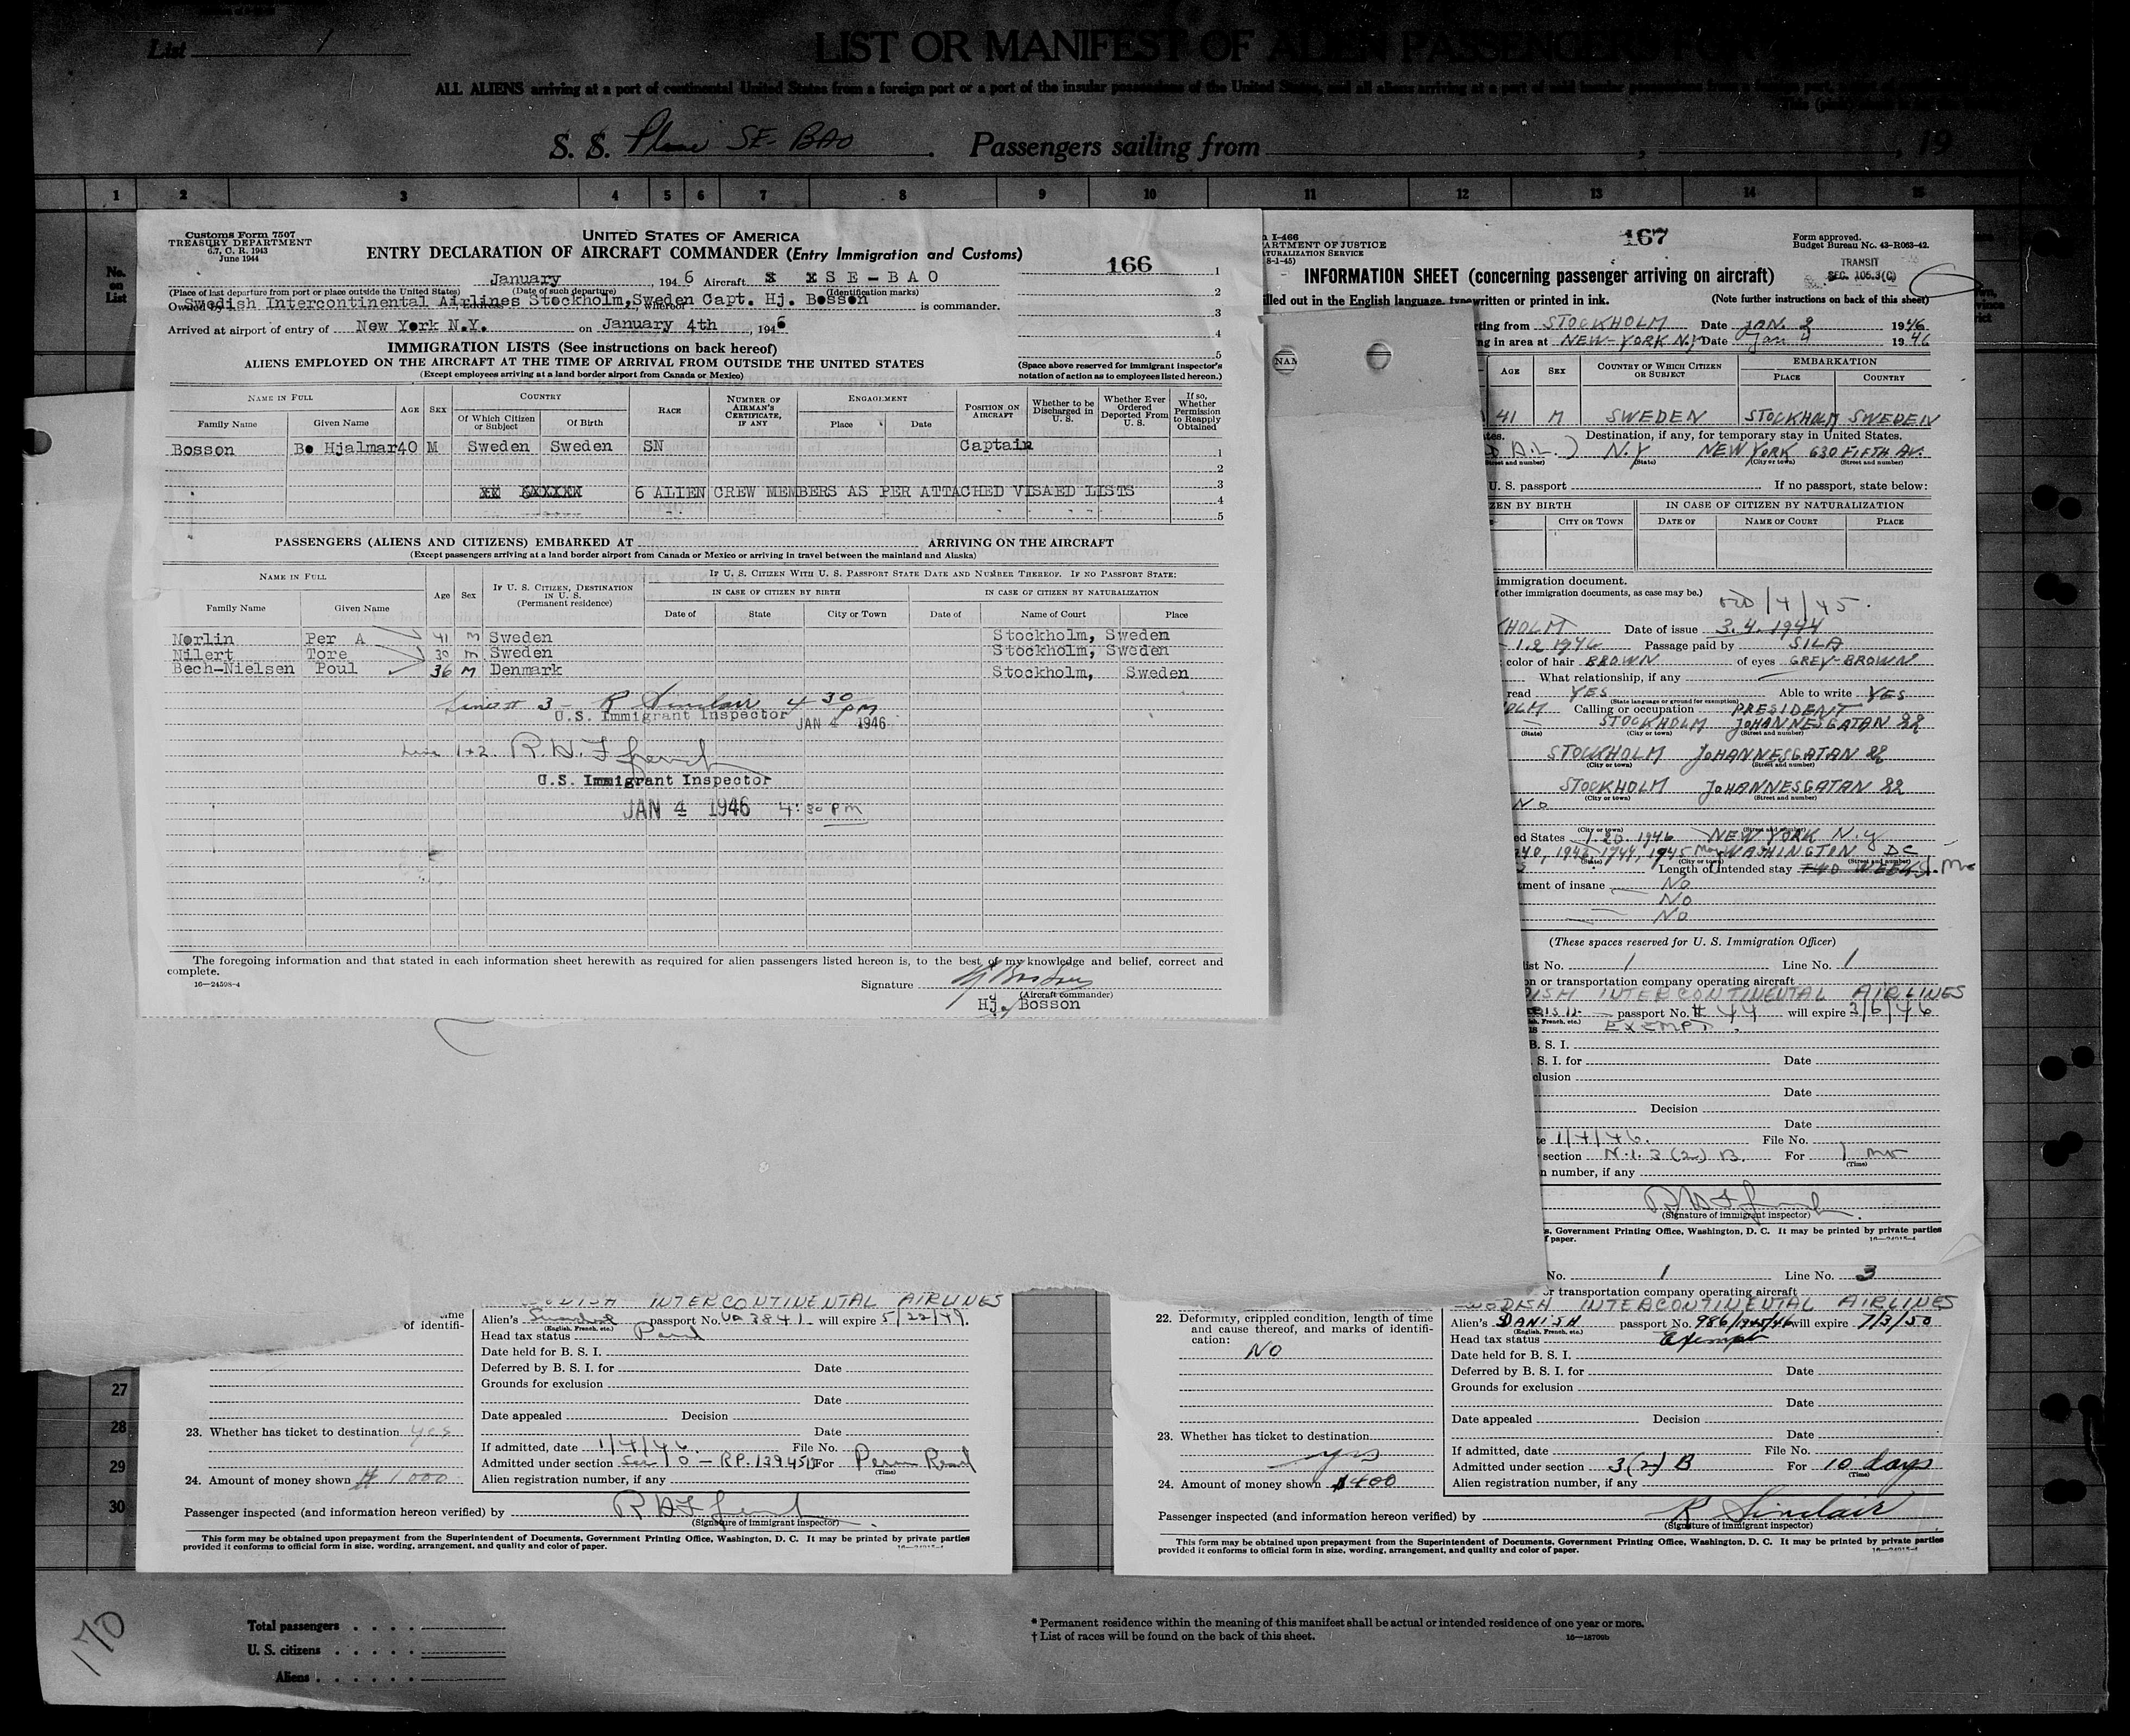 List 1
LIST OR MANIFEST OF ALIEN PASSENGERS FOR
ALL ALIENS arriving at a port of continental United States from a foreign port or a port of the insular possessions of the United States, and all aliens arriving at a port of said insular possessions from
S. S. Plane SE-BAO. Passengers sailing from , , 19
1 2 3 4 5 6 7 8 9 10 11 12 13 14 15
No. on List
Customs Form 7507
TREASURY DEPARTMENT
6.7, C. R. 1943
June 1944
UNITED STATES OF AMERICA
ENTRY DECLARATION OF AIRCRAFT COMMANDER (Entry Immigration and Customs)
166
January , 1946 Aircraft X X SE-BAO
(Place of last departure from port or place outside the United States) (Date of such departure) (Identification marks)
Owned by Swedish Intercontinental Airlines Stockholm, Sweden, whereof Capt. Hj. Bosson is commander.
Arrived at airport of entry of New York N.Y. on January 4th , 1946
IMMIGRATION LISTS (See instructions on back hereof)
ALIENS EMPLOYED ON THE AIRCRAFT AT THE TIME OF ARRIVAL FROM OUTSIDE THE UNITED STATES
(Except employees arriving at a land border airport from Canada or Mexico)
1
2
3
4
5
(Space above reserved for immigrant inspector's notation of action as to employees listed hereon.)
NAME IN FULL
Family Name Given Name
AGE SEX
COUNTRY
Of Which Citizen or Subject Of Birth
RACE
NUMBER OF AIRMAN'S CERTIFICATE, IF ANY
ENGAGEMENT
Place Date
POSITION ON AIRCRAFT
Whether to be Discharged in U. S.
Whether Ever Ordered Deported From U. S.
If so, Whether Permission to Reapply Obtained
Bosson Bo Hjalmar 40 M Sweden Sweden SN Captain 1
2
3
6 ALIEN CREW MEMBERS AS PER ATTACHED VISAED LISTS
4
5
PASSENGERS (ALIENS AND CITIZENS) EMBARKED AT ARRIVING ON THE AIRCRAFT
(Except passengers arriving at a land border airport from Canada or Mexico or arriving in travel between the mainland and Alaska)
NAME IN FULL
Family Name Given Name
Age Sex
IF U. S. CITIZEN, DESTINATION IN U. S. (Permanent residence)
IF U. S. CITIZEN WITH U. S. PASSPORT STATE DATE AND NUMBER THEREOF. IF NO PASSPORT STATE:
IN CASE OF CITIZEN BY BIRTH IN CASE OF CITIZEN BY NATURALIZATION
Date of State City or Town Date of Name of Court Place
Norlin Per A 41 M Sweden Stockholm, Sweden
Nilert Tore 30 M Sweden Stockholm, Sweden
Bech-Nielsen Poul 36 M Denmark Stockholm, Sweden
Line # 3 - R Sinclair 4 30 PM
U.S. Immigrant Inspector JAN 4 1946
Line 1+2. R.H.F French
U.S. Immigrant Inspector
JAN 4 1946 4:30 PM
The foregoing information and that stated in each information sheet herewith as required for alien passengers listed hereon is, to the best of my knowledge and belief, correct and complete.
16—24598-4
Signature Hj Bosson
(Aircraft commander)
Hj. Bosson
I-466
ARTMENT OF JUSTICE
TURALIZATION SERVICE
8-1-45)
167
Form approved.
Budget Bureau No. 43-R063-42.
TRANSIT
SEC. 105.3(C)
INFORMATION SHEET (concerning passenger arriving on aircraft)
illed out in the English language, typewritten or printed in ink. (Note further instructions on back of this sheet)
ting from STOCKHOLM Date JAN. 2 1946
ng in area at NEW-YORK N.Y Date Jan 4 1946
NAM
AGE SEX COUNTRY OF WHICH CITIZEN OR SUBJECT EMBARKATION
PLACE COUNTRY
41 M SWEDEN STOCKHOLM SWEDEN
tes. Destination, if any, for temporary stay in United States.
A.L.) N.Y NEW YORK 630 FIFTH AV.
(Street and number) (State) (City or town) (Street and number)
U. S. passport If no passport, state below:
ZEN BY BIRTH IN CASE OF CITIZEN BY NATURALIZATION
CITY OR TOWN DATE OF NAME OF COURT PLACE
immigration document.
other immigration documents, as case may be.)
KHOLM Date of issue 3.4.1944
1.2 1946 Passage paid by SILA
color of hair BROWN of eyes GREY-BROWN
What relationship, if any
read YES Able to write YES
(State language or ground for exemption)
OLM Calling or occupation PRESIDENT
STOCKHOLM JOHANNESGATAN 22
(State) (City or town) (Street and number)
STOCKHOLM JOHANNESGATAN 22
(City or town) (Street and number)
STOCKHOLM JOHANNESGATAN 22
(City or town) (Street and number)
No
ed States 1.20. 1946 NEW YORK N.Y
1944, 1945 WASHINGTON DC
Length of intended stay TWO WEEKS 1. Mo
tment of insane No
No
No
(These spaces reserved for U. S. Immigration Officer)
ist No. 1 Line No. 1
on or transportation company operating aircraft
DISH INTERCONTINENTAL AIRLINES
passport No. # 44 will expire 3/6/46
EXEMPT.
B. S. I.
S. I. for Date
clusion
Date
Decision
Date
te 1/4/46. File No.
section N.I. 3(2) B. For 1 mo
(Time)
n number, if any
R H F French
(Signature of immigrant inspector)
s, Government Printing Office, Washington, D. C. It may be printed by private parties
f paper.
No. 1 Line No. 3
or transportation company operating aircraft
SWEDISH INTERCONTINENTAL AIRLINES
Alien's DANISH passport No. 986/1945/46 will expire 7/3/50
(English, French, etc.)
Head tax status Exempt
Date held for B. S. I.
Deferred by B. S. I. for Date
Grounds for exclusion
Date
Date appealed Decision
Date
If admitted, date File No.
Admitted under section 3(2) B For 10 days
(Time)
Alien registration number, if any
22. Deformity, crippled condition, length of time and cause thereof, and marks of identification:
NO
23. Whether has ticket to destination
yes
24. Amount of money shown $400
Passenger inspected (and information hereon verified) by R Sinclair
(Signature of immigrant inspector)
This form may be obtained upon prepayment from the Superintendent of Documents, Government Printing Office, Washington, D. C. It may be printed by private parties
provided it conforms to official form in size, wording, arrangement, and quality and color of paper.
ime
of identifi-
SWEDISH INTERCONTINENTAL AIRLINES
Alien's passport No. 3841 will expire 5/22/47.
(English, French, etc.)
Head tax status Paid
Date held for B. S. I.
Deferred by B. S. I. for Date
Grounds for exclusion
Date
Date appealed Decision
Date
If admitted, date 1/4/46. File No.
Admitted under section Sec 10 - RP. For Perm Resid
(Time)
Alien registration number, if any
23. Whether has ticket to destination yes
24. Amount of money shown $ 1000
Passenger inspected (and information hereon verified) by R H F French
(Signature of immigrant inspector)
This form may be obtained upon prepayment from the Superintendent of Documents, Government Printing Office, Washington, D. C. It may be printed by private parties
provided it conforms to official form in size, wording, arrangement, and quality and color of paper.
27
28
29
30
170
Total passengers
U. S. citizens
Aliens
* Permanent residence within the meaning of this manifest shall be actual or intended residence of one year or more.
† List of races will be found on the back of this sheet.